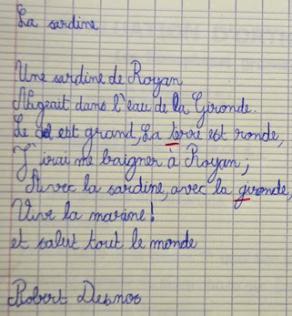 La sardine
Une sardine de Royan
Nageait dans l'eau de la Gironde.
Le ciel est grand, La terre est ronde,
J'irai me baigner à Royan;
Avec la sardine, avec la gironde,
Vive la marine!
et salut tout le monde
Robert Desnos